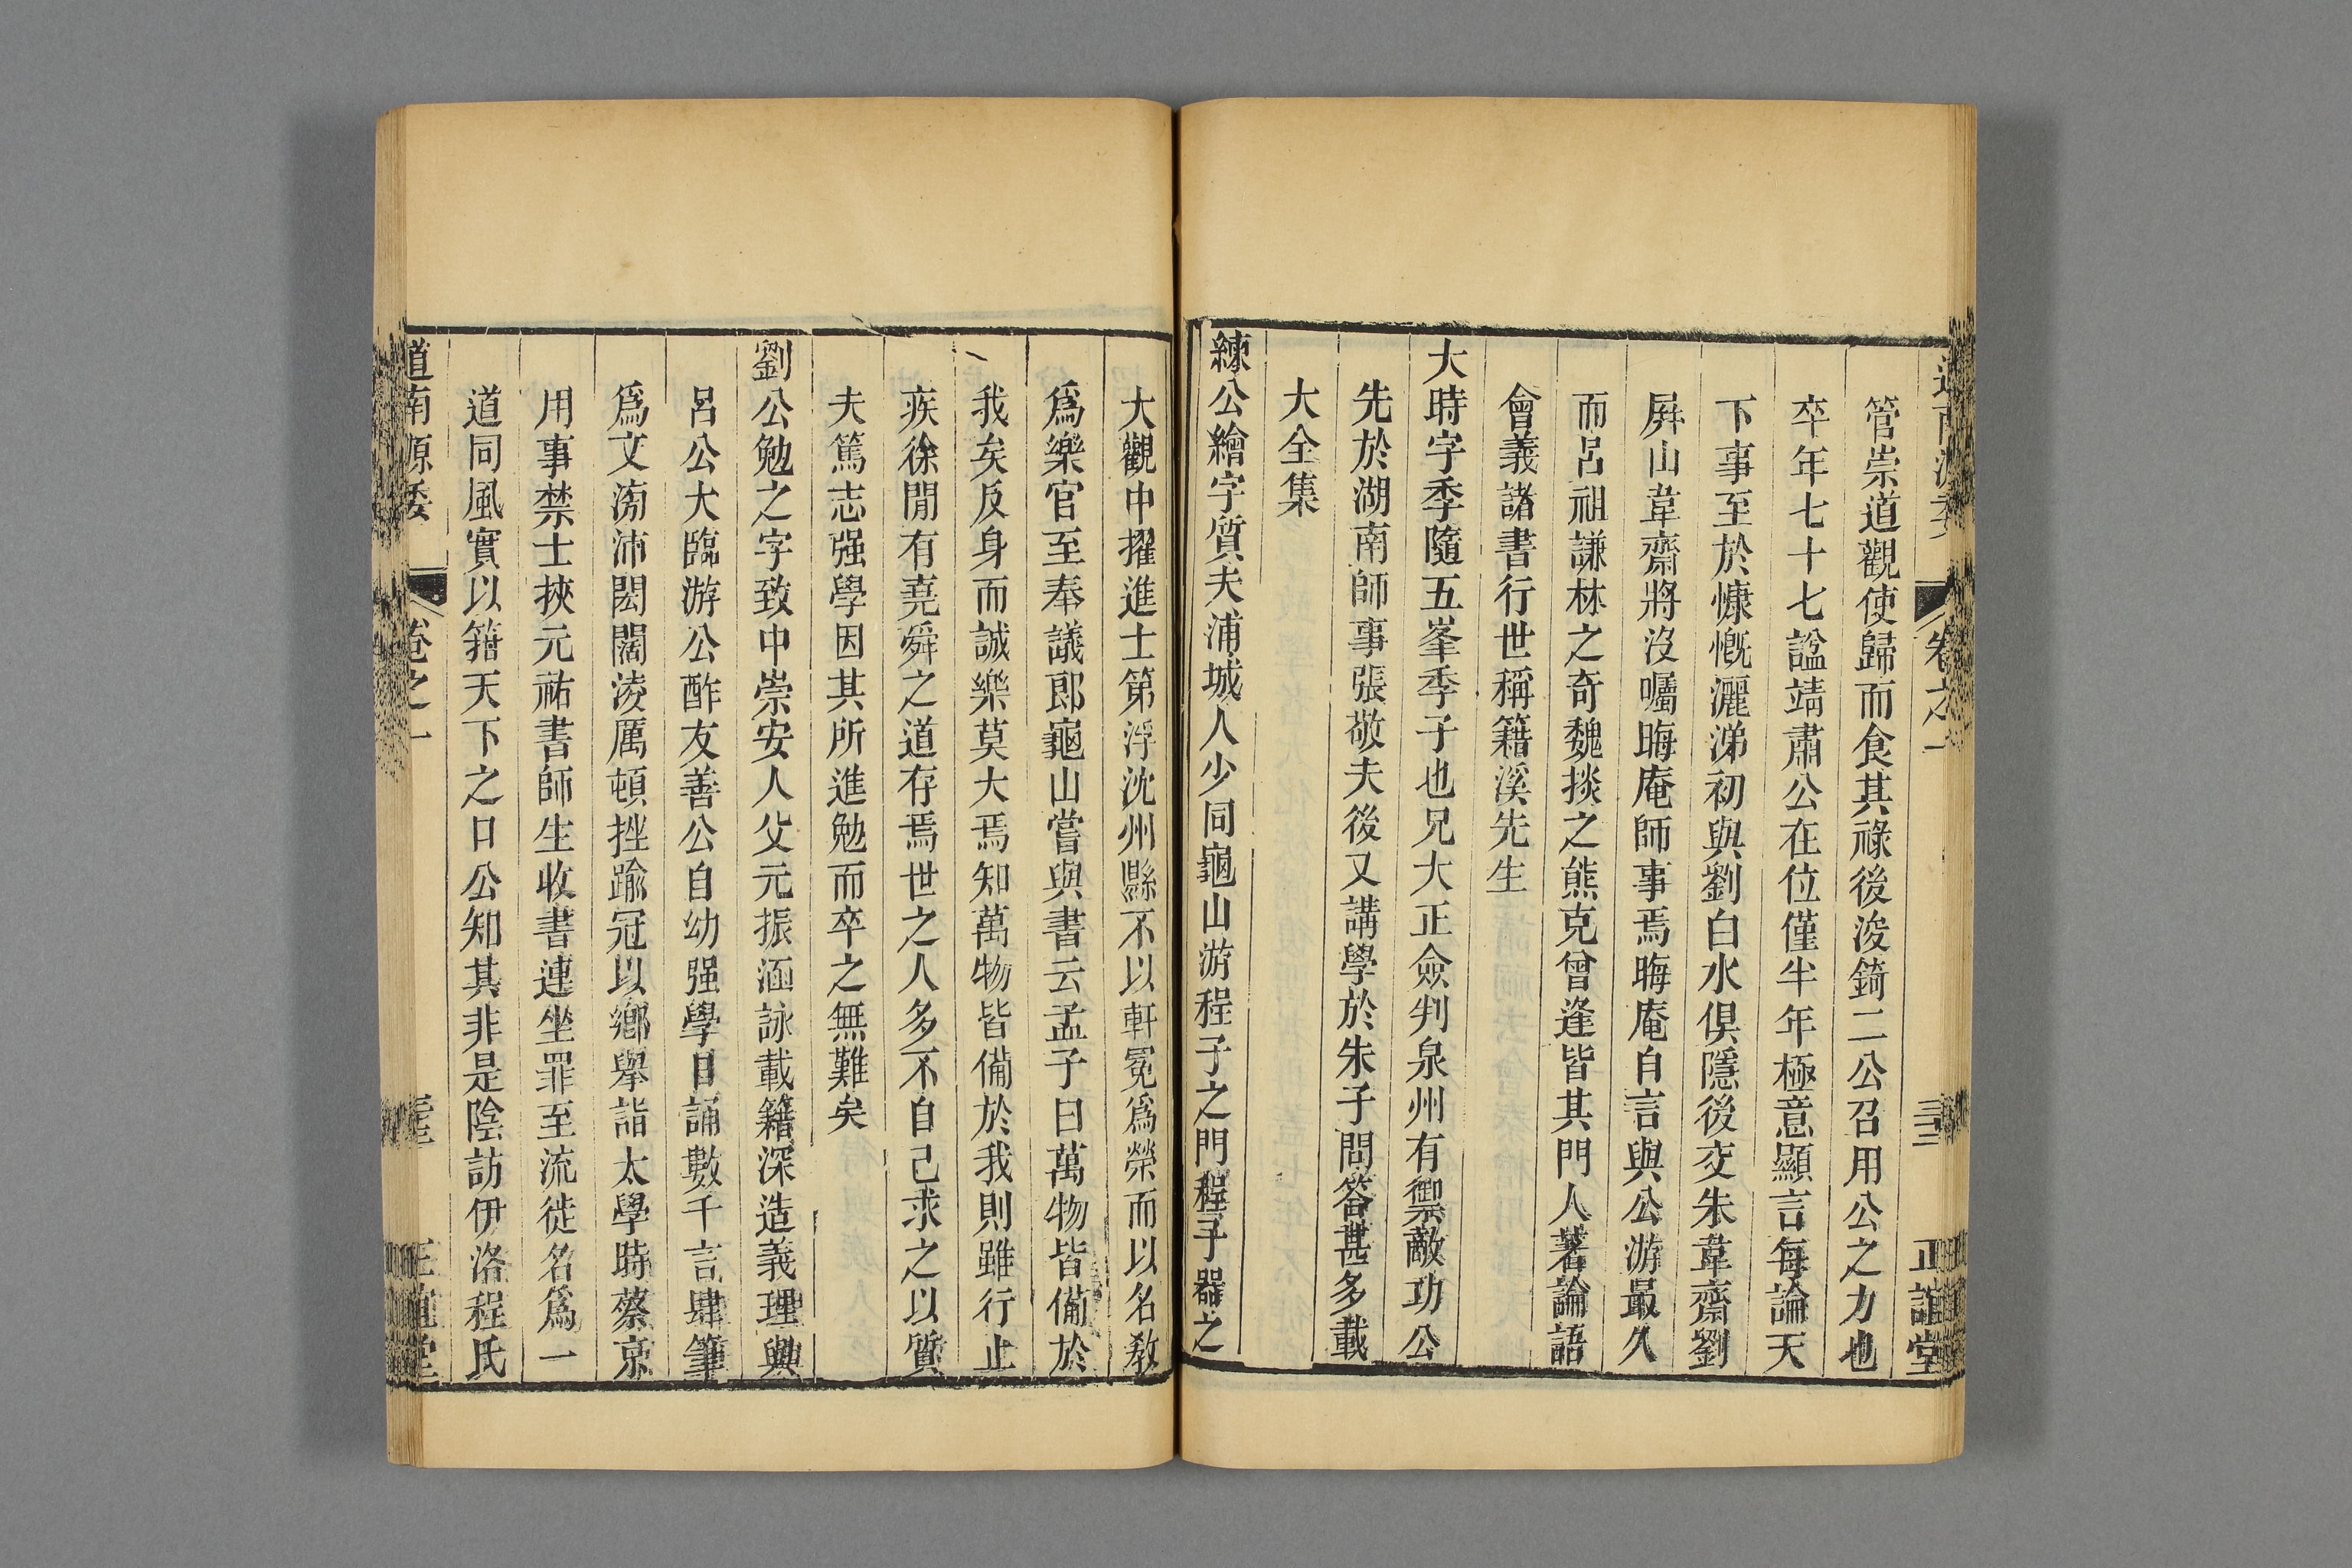 道南源委 卷之一 三三 正誼堂
管崇道觀使歸而食其祿後浚錡二公召用公之力也
卒年七十七諡靖肅公在位僅半年極意顯言每論天
下事至於慷慨灑涕初與劉白水俱隱後交朱韋齋劉
屏山韋齋將沒囑晦庵師事焉晦庵自言與公游最久
而呂祖謙林之奇魏掞之熊克曾逢皆其門人著論語
會義諸書行世稱籍溪先生
大時字季隨五峯季子也兄大正僉判泉州有禦敵功公
先於湖南師事張敬夫後又講學於朱子問答甚多載
大全集
練公繪字質夫浦城人少同龜山游程子之門程子器之
大觀中擢進士第浮沈州縣不以軒冕為榮而以名敎
爲樂官至奉議郎龜山嘗與書云孟子曰萬物皆備於
我矣反身而誠樂莫大焉知萬物皆備於我則雖行止
疾徐閒有堯舜之道存焉世之人多不自己求之以質
夫篤志强學因其所進勉而卒之無難矣
劉公勉之字致中崇安人父元振涵詠載籍深造義理與
呂公大臨游公酢友善公自幼强學日誦數千言肆筆
爲文滂沛閎闊淩厲頓挫踰冠以鄉舉詣太學時蔡京
用事禁士挾元祐書師生收書連坐罪至流徙名爲一
道同風實以籍天下之口公知其非是陰訪伊洛程氏
道南源委 卷之一 正誼堂